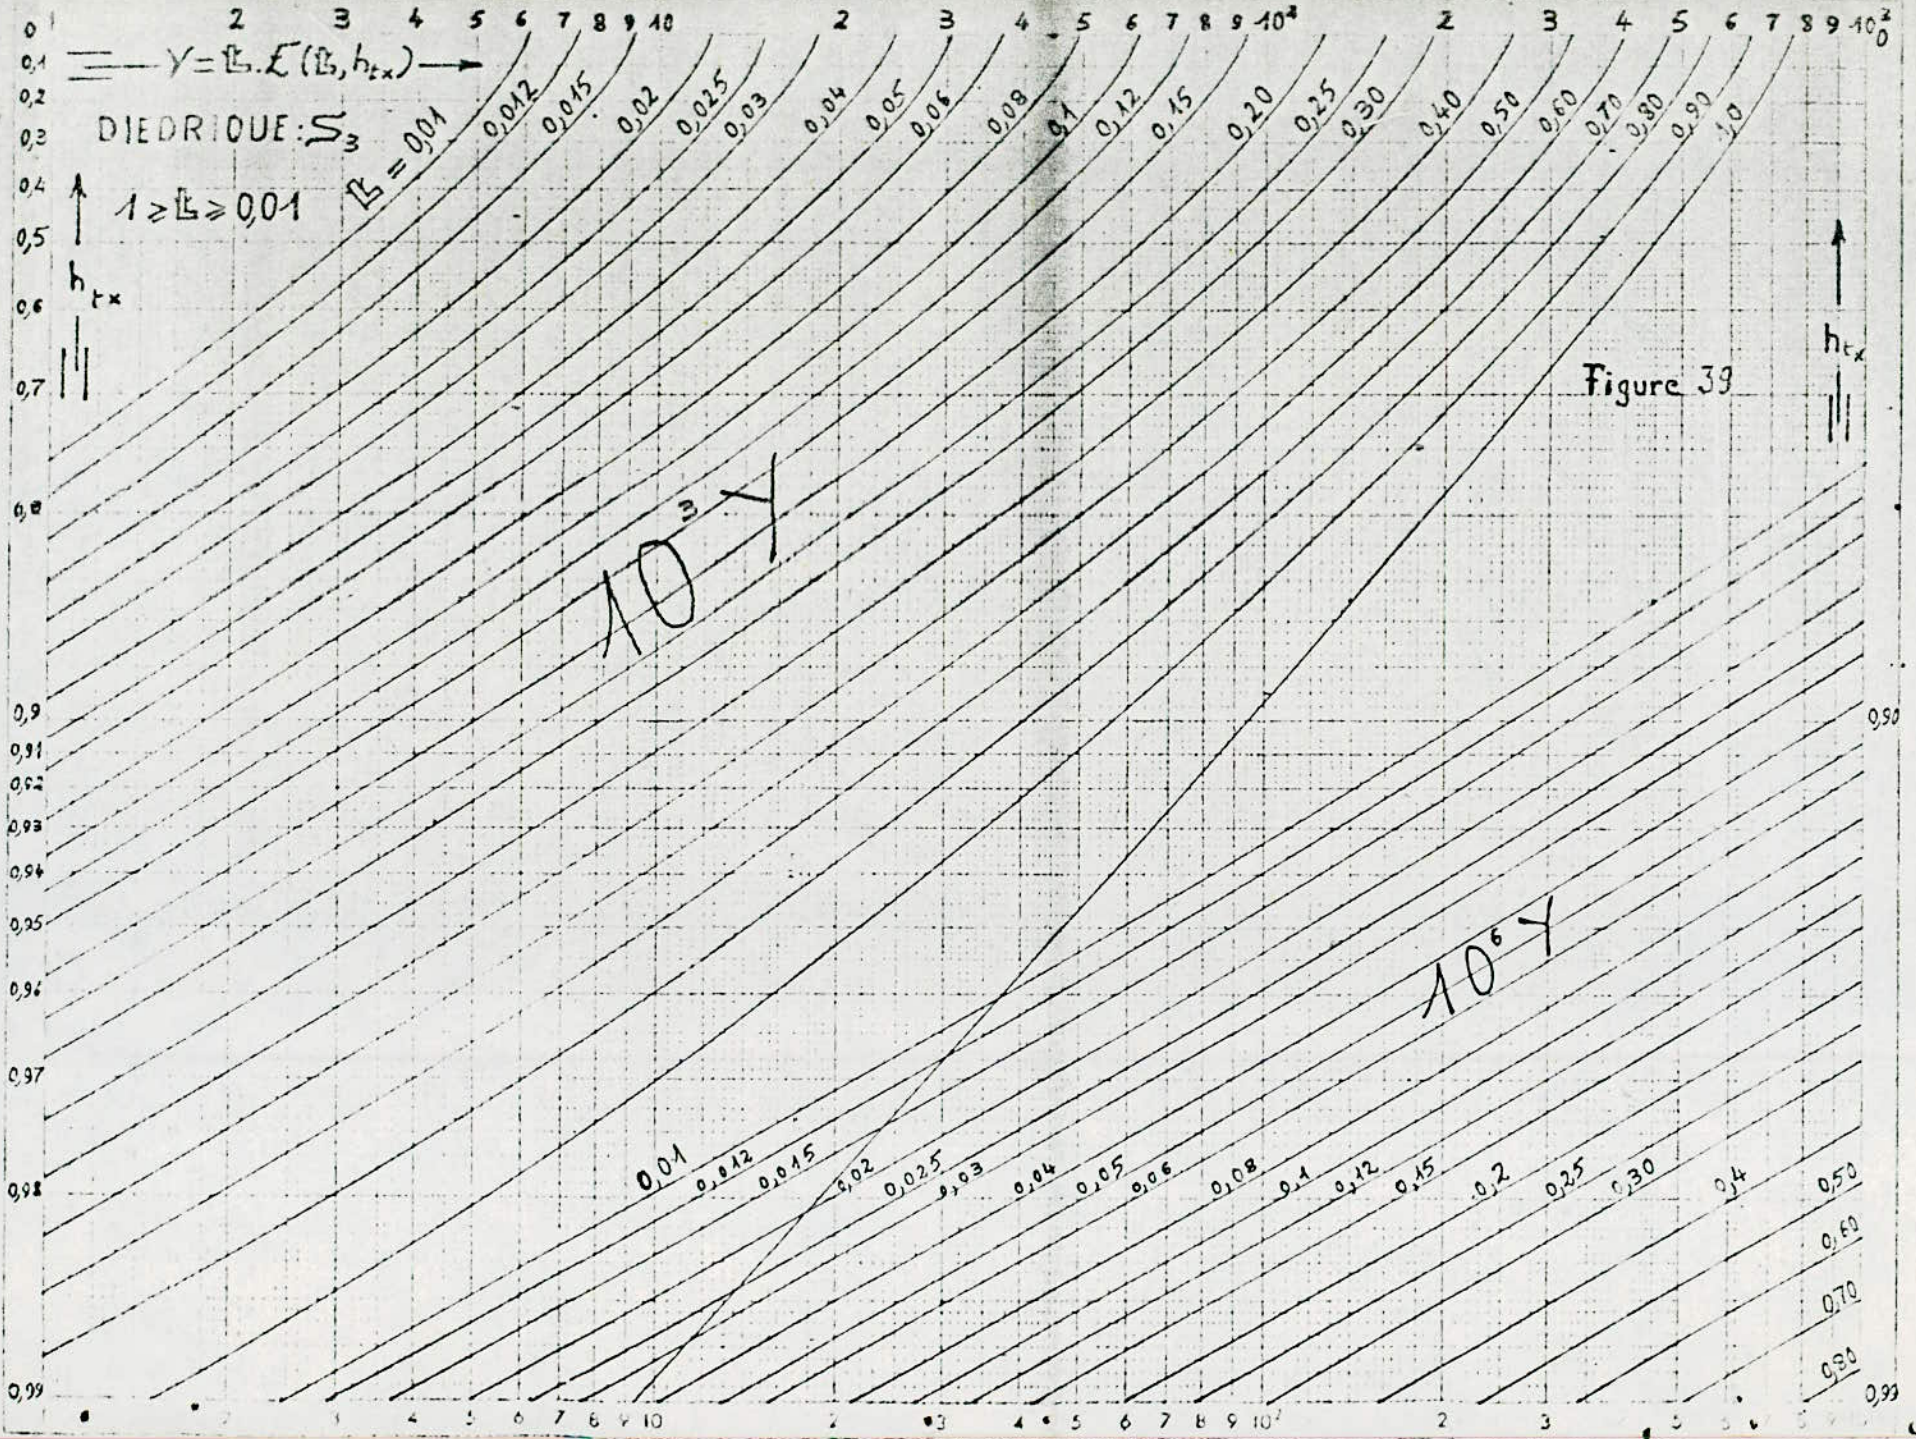 1 2 3 4 5 6 7 8 9 10 2 3 4 5 6 7 8 9 10² 2 3 4 5 6 7 8 9 10³
0
0
0,1
0,2
0,3
0,4
0,5
0,6
0,7
0,8
0,9
0,91
0,92
0,93
0,94
0,95
0,96
0,97
0,98
0,99
Y = 𝕃.E(𝕃, h_tx)
DIEDRIQUE: S₃
1 ⩾ 𝕃 ⩾ 0,01
h_tx
𝕃 = 0,01 0,012 0,015 0,02 0,025 0,03 0,04 0,05 0,06 0,08 0,1 0,12 0,15 0,20 0,25 0,30 0,40 0,50 0,60 0,70 0,80 0,90 1,0
h_tx
Figure 39
10³ Y
0,90
10⁶ Y
0,01 0,012 0,015 0,02 0,025 0,03 0,04 0,05 0,06 0,08 0,1 0,12 0,15 0,2 0,25 0,30 0,4 0,50
0,60
0,70
0,80
0,99
2 3 4 5 6 7 8 9 10 2 3 4 5 6 7 8 9 10² 2 3 5